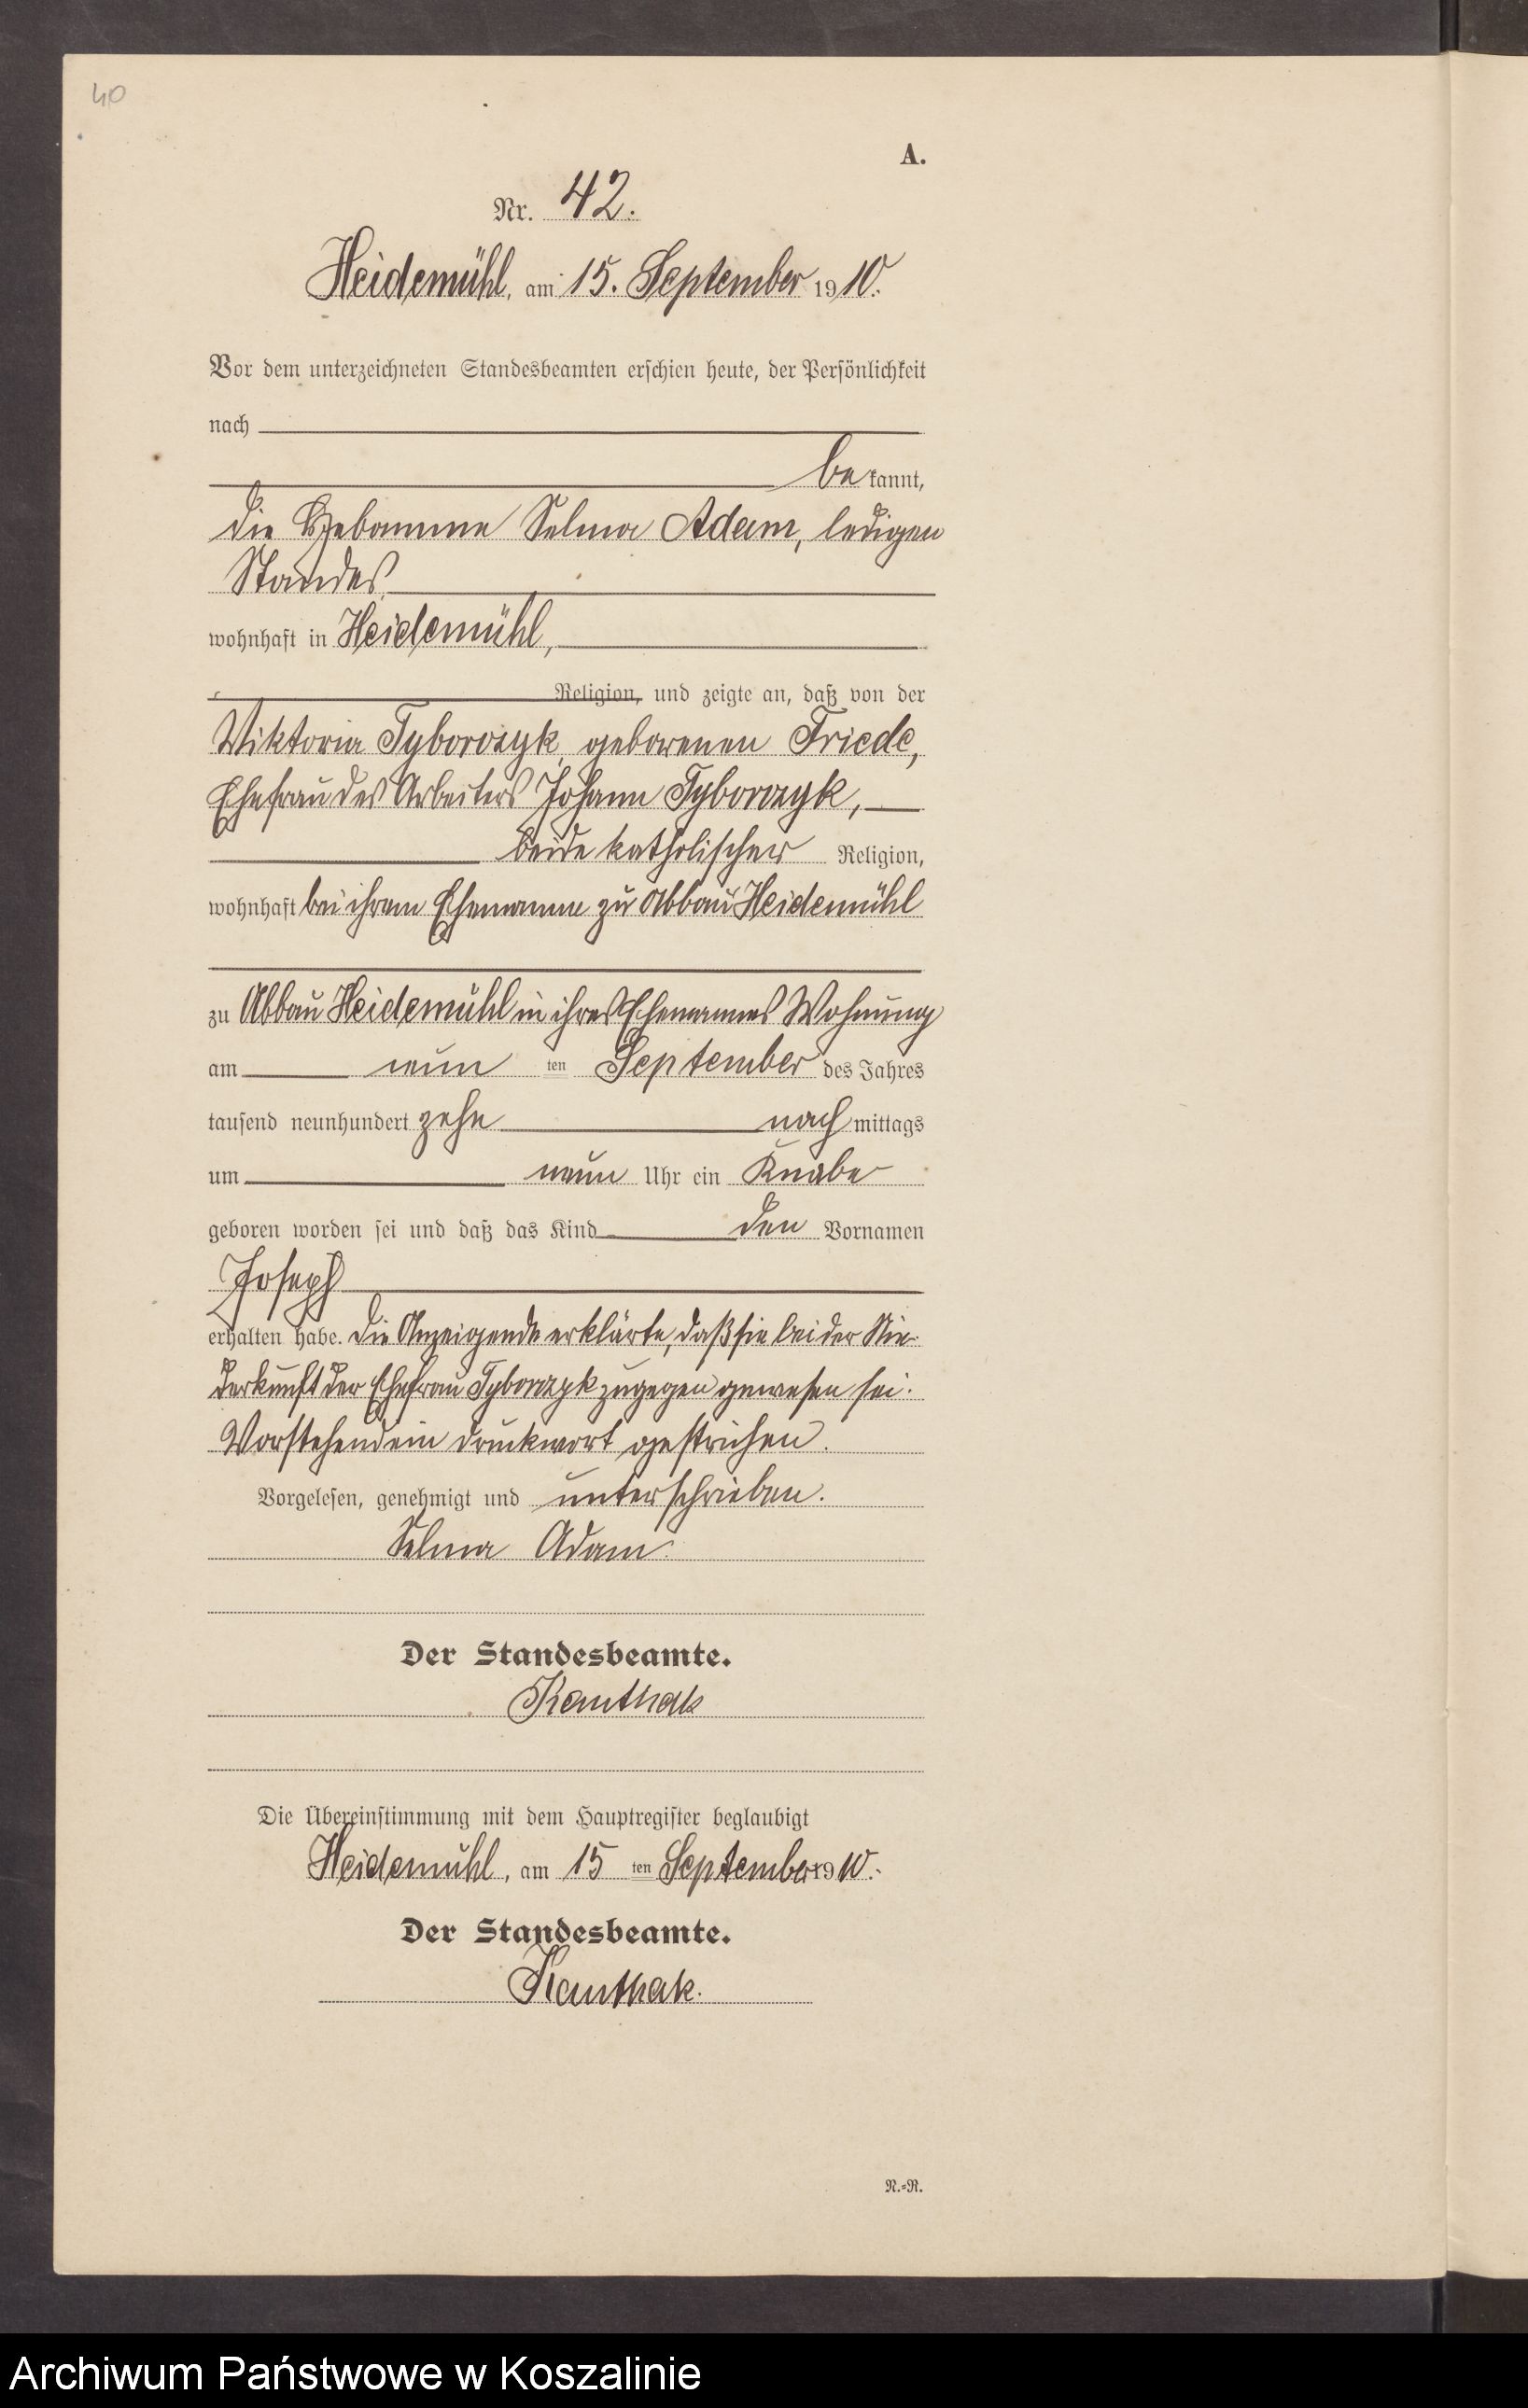 40
A.
Nr. 42.
Heidemühl, am 15. September 1910.
Vor dem unterzeichneten Standesbeamten erschien heute, der Persönlichkeit
nach
bekannt,
die Hebamme Selma Adam, ledigen
Standes,
wohnhaft in Heidemühl,
Religion, und zeigte an, daß von der
Viktoria Tyborczyk, geborenen Friede,
Ehefrau des Arbeiters Johann Tyborczyk,
beide katholischer Religion,
wohnhaft bei ihrem Ehemanne zu Abbau Heidemühl
zu Abbau Heidemühl in ihres Ehemannes Wohnung
am neun ten September des Jahres
tausend neunhundert zehn nach mittags
um neun Uhr ein Knabe
geboren worden sei und daß das Kind den Vornamen
Joseph
erhalten habe. Die Anzeigende erklärte, daß sie bei der Nie-
derkunft der Ehefrau Tyborczyk zugegen gewesen sei.
Vorstehend ein Druckwort gestrichen.
Vorgelesen, genehmigt und unterschrieben.
Selma Adam.
Der Standesbeamte.
Kanthak
Die Übereinstimmung mit dem Hauptregister beglaubigt
Heidemühl, am 15 ten September 1910.
Der Standesbeamte.
Kanthak.
N.=R.
Archiwum Państwowe w Koszalinie